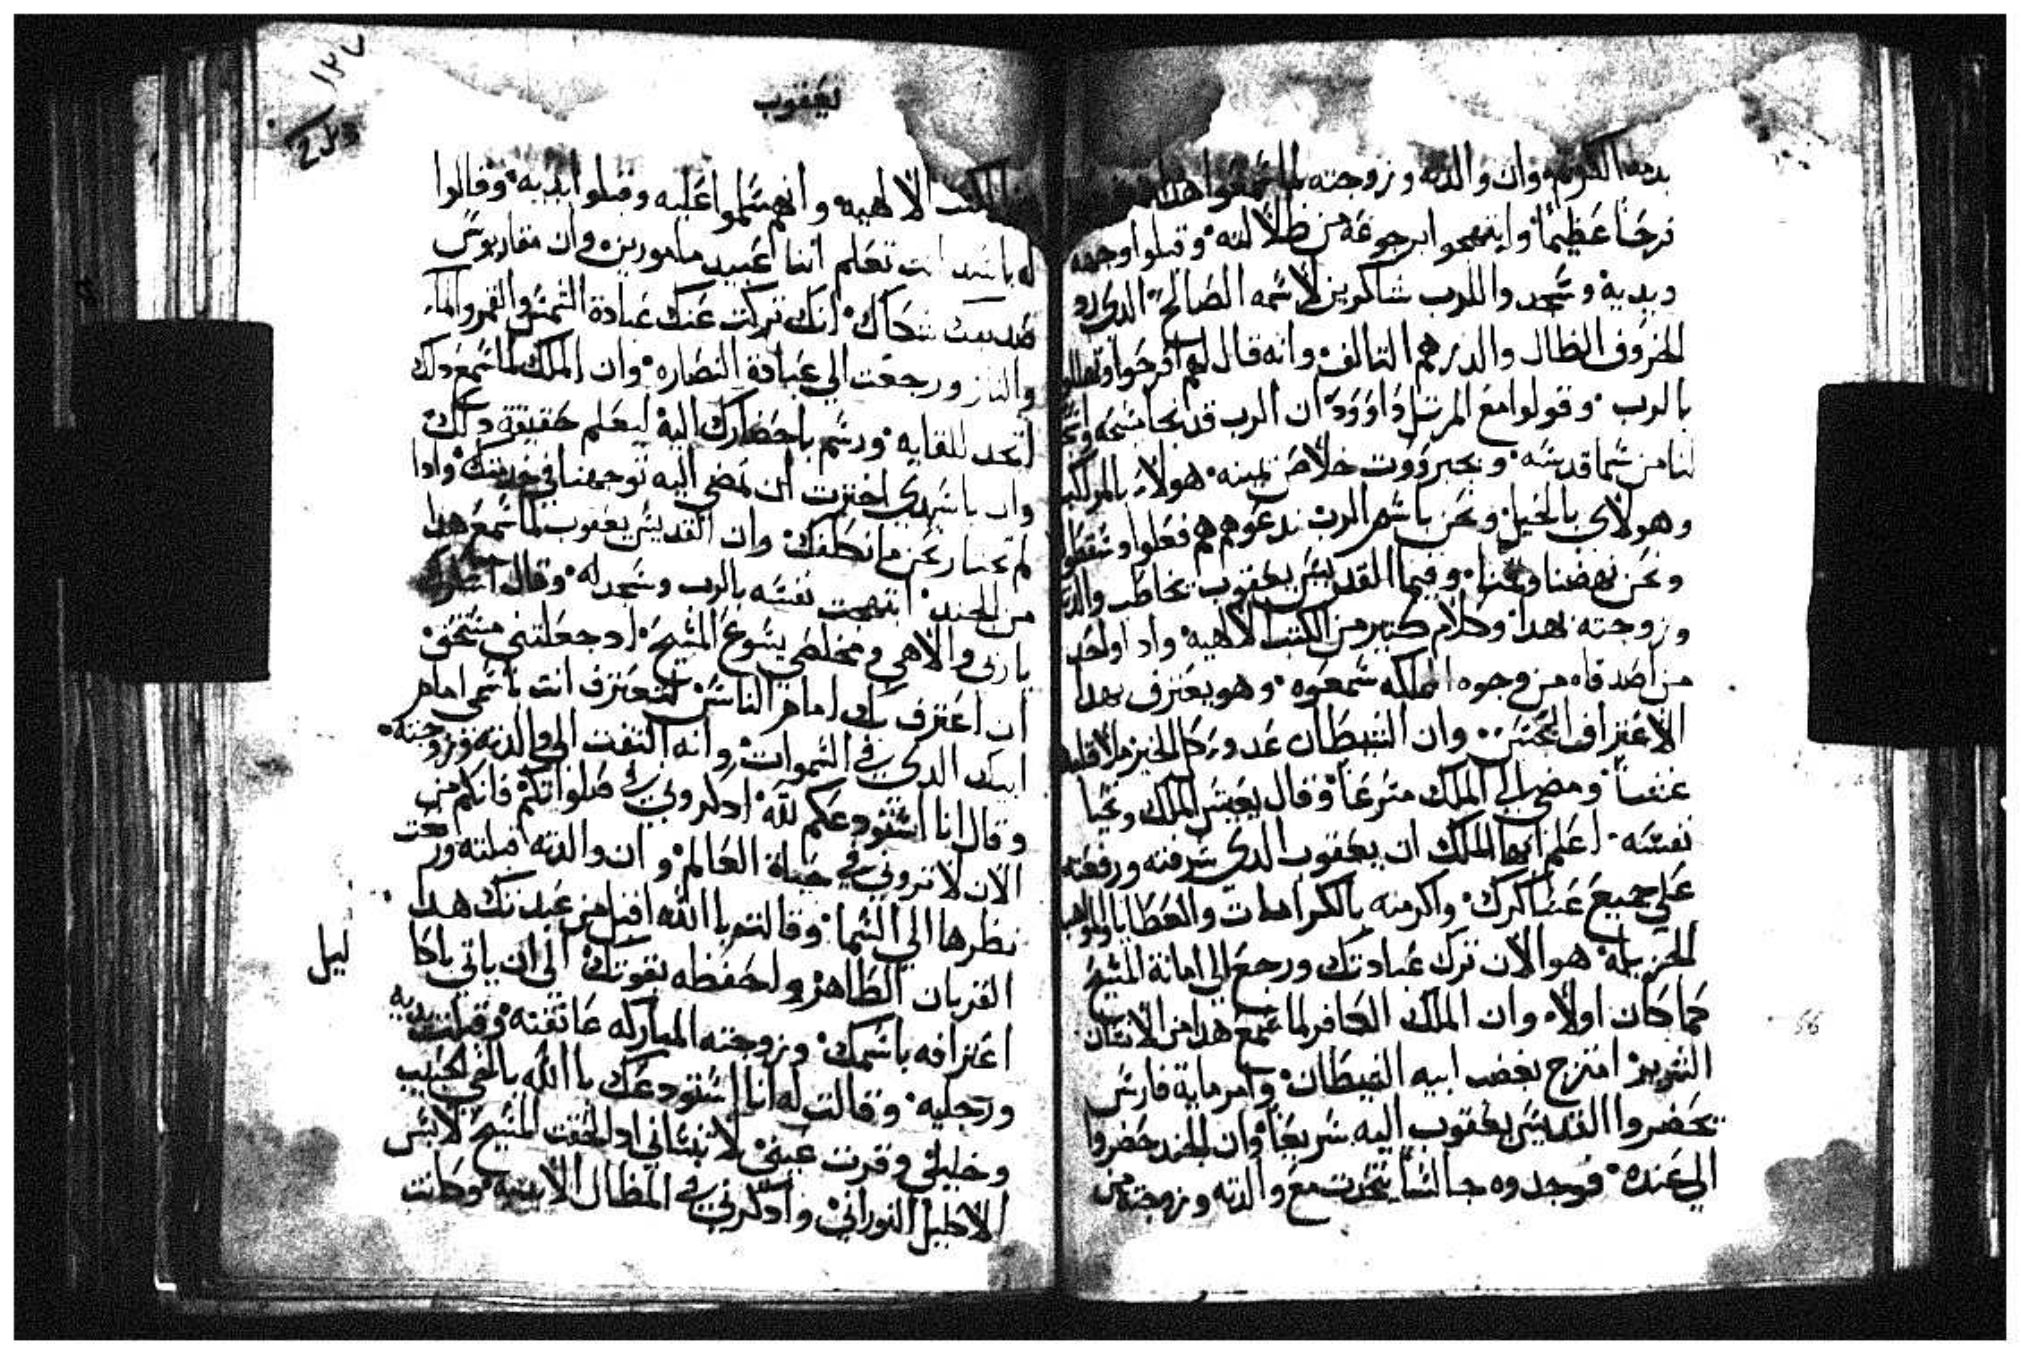 بدمه الكريم وان والدته وزوجته لما سمعوا هذا
فرحًا عظيمًا وابتهجوا برجوعه من ضلالته وقبلوا وجهه
ويديه وسجدوا للرب شاكرين لاسمه الصالح الدي رد
الخروف الضال والدرهم التالف وانه قال لهم افرحوا وتهللوا
بالرب وقولوا مع المرتل داوود ان الرب قد نجا مسيحه
لنا من سما قدسه وبجبروت خلاص يمينه هولاء بالمراكب
وهولاى بالخيل ونحن باسم الرب ندعوهم هم فعلوا وسقطوا
ونحن نهضنا وقمنا وفيما القديس يعقوب يخاطب والدته
وزوجته بهدا وكلام كتير من الكتب الالاهيه واد اواحد
من اصدقاه من وجوه المملكه سمعوه وهو يعترف بهدا
الاعتراف الحسن وان الشيطان عدو كل الخير ملا قلبه
غضباً ومضى الى الملك مسرعًا وقال يعيش الملك وتحيا
نفسه اعلم ايها الملك ان يعقوب الدي شرفته ورفعته
على جميع عساكرك واكرمته بالكرامات والعطايا والمواهب
الجزيله هو الان ترك عبادتك ورجع الى امانة المسيح
كما كان اولاً وان الملك الكافر لما سمع هدا من الانسان
الشرير امتزج بغضب ابيه الشيطان وامر ماية فارس
يحضروا القديس يعقوب اليه سريعًا وان الجند حضروا
الي عنده فوجدوه جالسًا يتحدت مع والدته وزوجته من
يعقوب
١٢٧
الكتب الالاهيه وانهم سلموا عليه وقبلوا يديه وقالوا
له يا سيد انت تعلم اننا عبيد مامورين وان
صديقك شكاك انك تركت عنك عبادة الشمس والقمر والماء
والنار ورجعت الى عبادة النصاره وان الملك لما سمع دلك
ورسم باحضارك اليه ليعلم حقيقة دلك
وان يا سيدي اخترت ان تمضى اليه توجهنا في خدمتك وادا
لم تختار نحن ما نكلفك وان القديس يعقوب لما سمع هدا
من الجند ابتهجت نفسه بالرب وسجد له وقال اشكرك
يا ربى والاهي ومخلصي يسوع المسيح اد جعلتني مستحق
ان اعترف بك امام الناس لتعترف انت باسمى امام
ابيك الدي في السموات وانه التفت الى والدته وزوجته
وقال انا استودعكم لله ادكروني في صلواتكم فانكم من
الان لا تروني في حياة العالم وان والدته قبلته ورفعت
نظرها الي السما وقالت يا الله اقبل من عبدتك هدا
القربان الطاهر واحفظه بقوتك الى ان ياتي باكا
ليل
اعترافه باسمك وزوجته المباركه عانقته وقبلت يديه
ورجليه وقالت له انا استودعك يا الله يا اخي الحبيب
وخليلي وقرت عيني لا تنساني اد الحقت المسيح لابس
الاكليل النوراني وادكرني في المظال الابديه وكانت